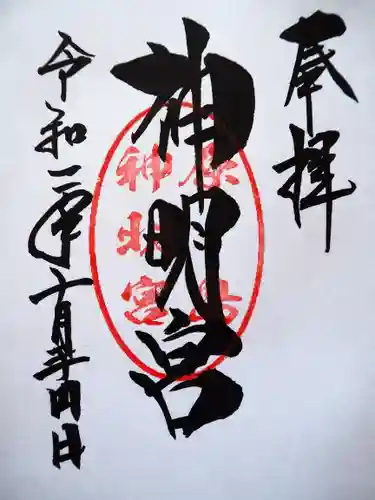 奉拝
神明宮
神明宮
令和二年十月廿四日